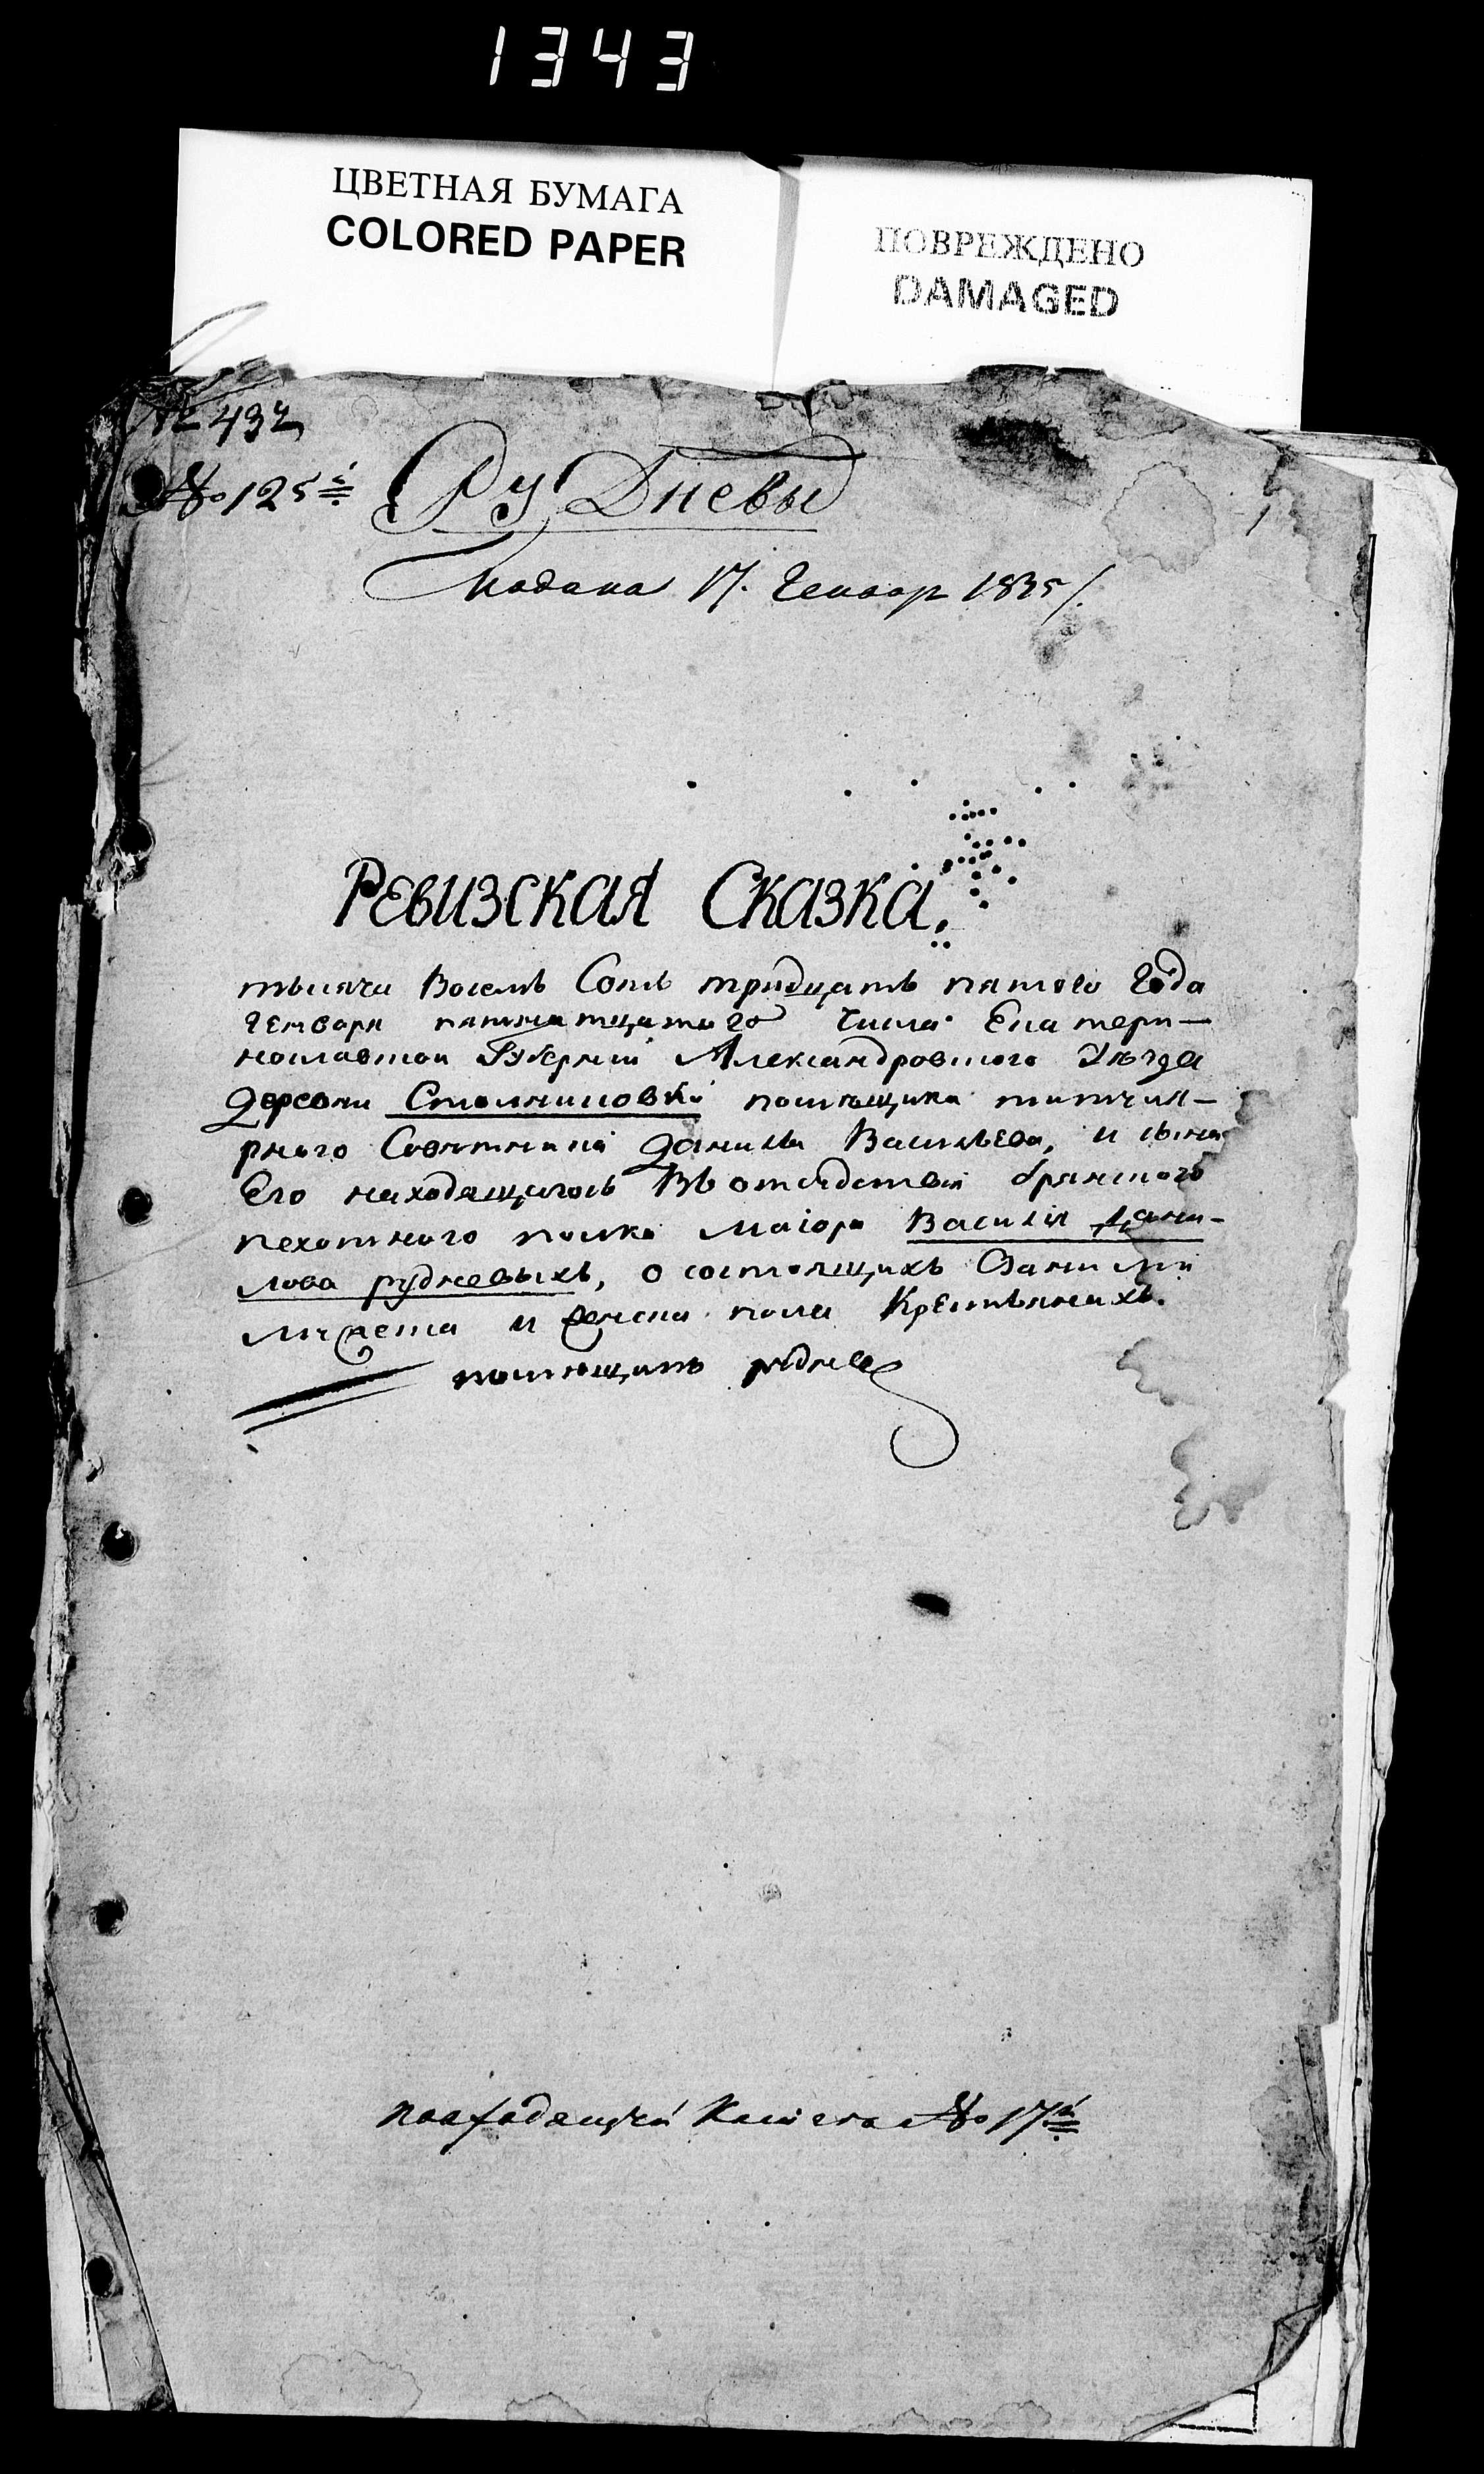 1343
ЦВЕТНАЯ БУМАГА
COLORED PAPER
ПОВРЕЖДЕНО
DAMAGED
№ 432
№ 125й
Рудневы
Подана 17. Генваря 1835/.
Ревизская Сказка.
тысяча Восемь Сотъ тридцать пятого Года
Генваря пятнатцатого Числа Екатери-
нославской Губернии Александровского Уѣзда
деревни Столниковки помѣщика титуля-
рного Советника Данилы Васильева, и сына
Его находящегось Въ отсудствии брянского
пехотного полка Маiора Василiя Дани-
лова рудневыхъ, о состоящихъ
и женска пола Крестьянахъ.
помещикъ руднев
№ 17й